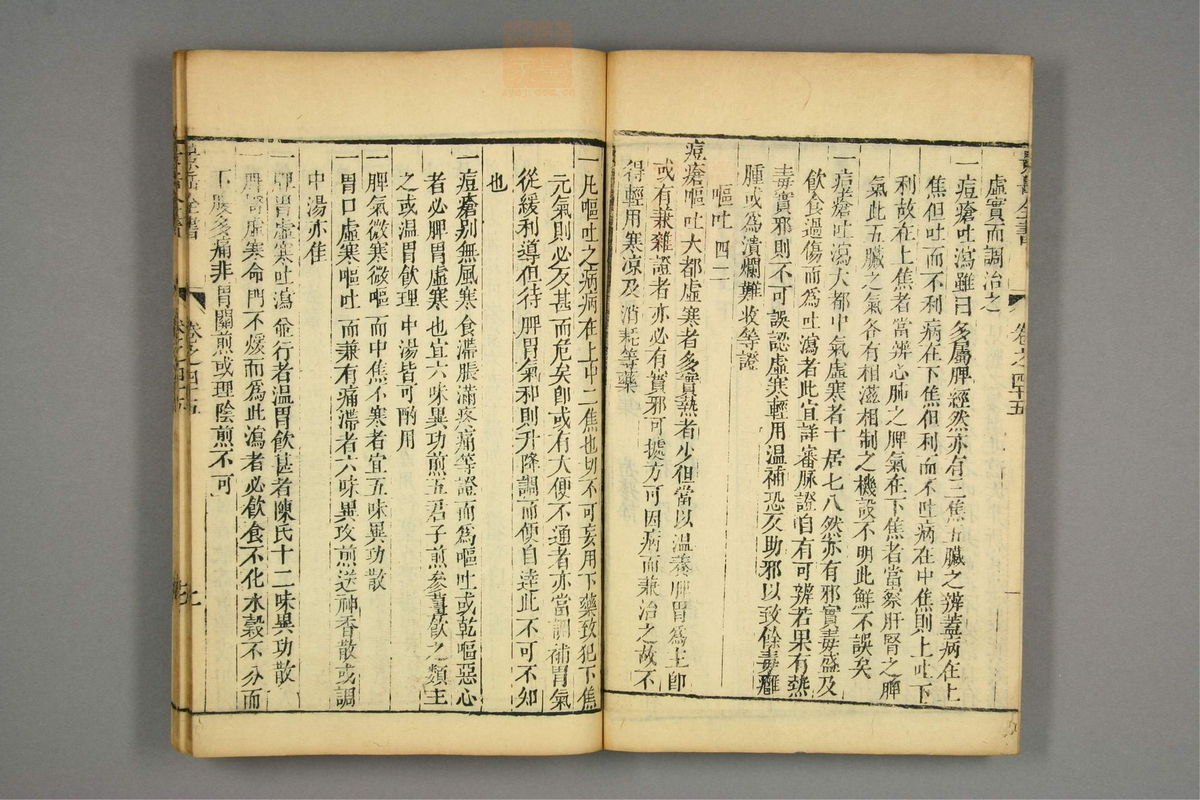 虛實而調治之
一痘瘡吐瀉雖曰多屬脾經然亦有三焦五臟之辨蓋病在上
焦但吐而不利病在下焦但利而不吐病在中焦則上吐下
利故在上焦者當辨心肺之脾氣在下焦者當察肝腎之脾
氣此五臟之氣各有相滋相制之機設不明此鮮不誤矣
一痘瘡吐瀉大都中氣虛寒者十居七八然亦有邪實毒盛及
飲食過傷而爲吐瀉者此宜詳審脉證自有可辨若果有熱
毒實邪則不可誤認虛寒輕用溫補恐反助邪以致餘毒癰
腫或爲潰爛難收等證
嘔吐 四二
痘瘡嘔吐大都虛寒者多實熱者少但當以溫養脾胃爲主即
或有兼雜證者亦必有實邪可據方可因病而兼治之故不
得輕用寒凉及消耗等藥
一凡嘔吐之病病在上中二焦也切不可妄用下藥致犯下焦
元氣則必反甚而危矣即或有大便不通者亦當調補胃氣
從緩利導但待脾胃氣和則升降調而便自達此不可不知
也
一痘瘡别無風寒食滯脹滿疼痛等證而爲嘔吐或乾嘔惡心
者必脾胃虛寒也宜六味異功煎五君子煎參薑飲之類主
之或温胃飲理中湯皆可酌用
一脾氣微寒微嘔而中焦不寒者宜五味異功散
一胃口虛寒嘔吐而兼有痛滯者六味異攻煎送神香散或調
中湯亦佳
一脾胃虛寒吐瀉並行者温胃飲甚者陳氏十二味異功散
脾腎虛寒命門不煖而爲此瀉者必飲食不化水穀不分而
下腹多痛非胃關煎或理陰煎不可
景岳全書
卷之四十五